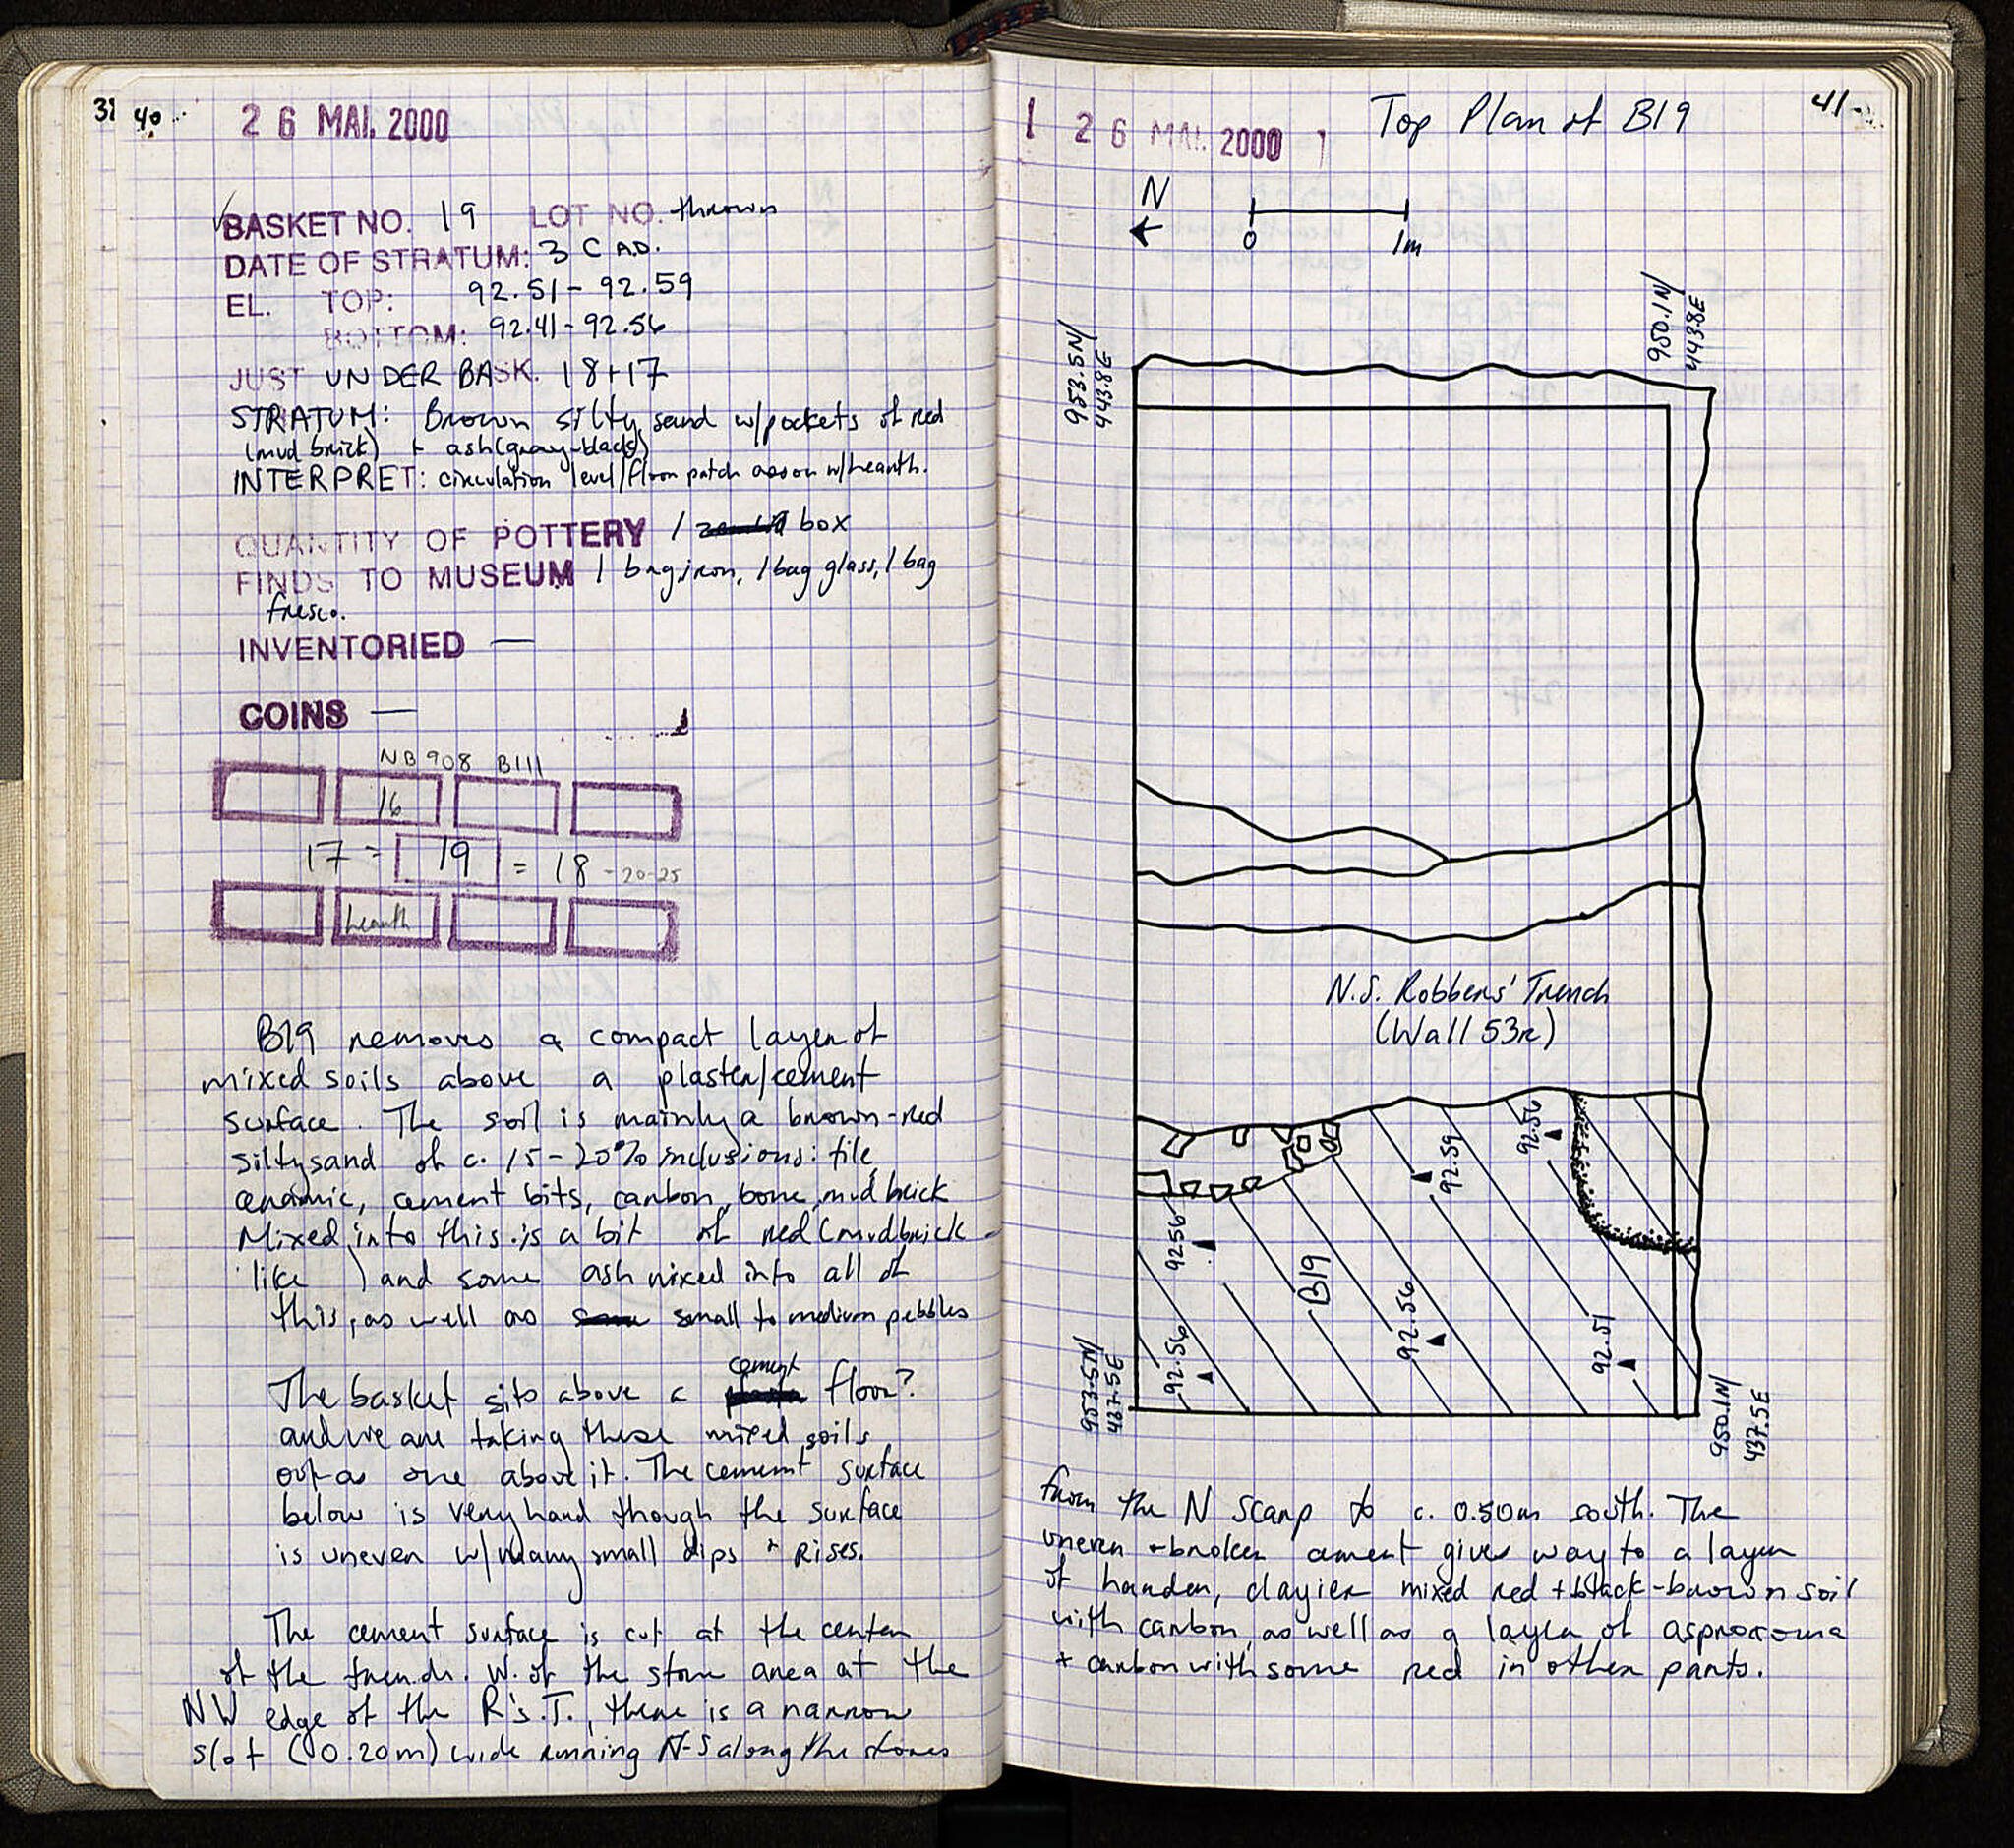 31
40
26 MAI. 2000
BASKET NO. 19 LOT NO. thrown
DATE OF STRATUM: 3 C A.D.
EL. TOP: 92.51-92.59
BOTTOM: 92.41-92.56
JUST UNDER BASK. 18+17
STRATUM: Brown silty sand w/pockets of red
(mud brick) + ash(gray-black)
INTERPRET: circulation level/floor patch assoc w/hearth.
QUANTITY OF POTTERY 1 box
FINDS TO MUSEUM 1 bag iron, 1 bag glass, 1 bag
fresco.
INVENTORIED —
COINS —
NB 908 B111
16
17 = 19 = 18 -20-25
hearth
B19 removes a compact layer of
mixed soils above a plaster/cement
surface. The soil is mainly a brown-red
silty sand of c. 15-20% inclusions: tile,
ceramic, cement bits, carbon, bone, mud brick
Mixed into this is a bit of red (mudbrick-
like) and some ash mixed into all of
this, as well as small to medium pebbles
The basket sits above a cement floor?
and we are taking these mixed soils
out as one above it. The cement surface
below is very hard though the surface
is uneven w/many small dips + rises.
The cement surface is cut at the center
of the trench. W. of the stone area at the
NW edge of the R's.T., there is a narrow
slot (0.20m) wide running N-S along the stones
1 26 MAI. 2000 1
Top Plan of B19
41
N
0 1m
953.5N/
443.8E
950.1N/
443.8E
N.S. Robbers' Trench
(Wall 53r)
92.56
92.59
92.56
B19
92.56
92.56
92.51
953.5N/
437.5E
950.1N/
437.5E
from the N scarp to c. 0.50m south. The
uneven + broken cement gives way to a layer
of harder, clayier mixed red + black-brown soil
with carbon, as well as a layer of asproxoma
+ carbon with some red in other parts.